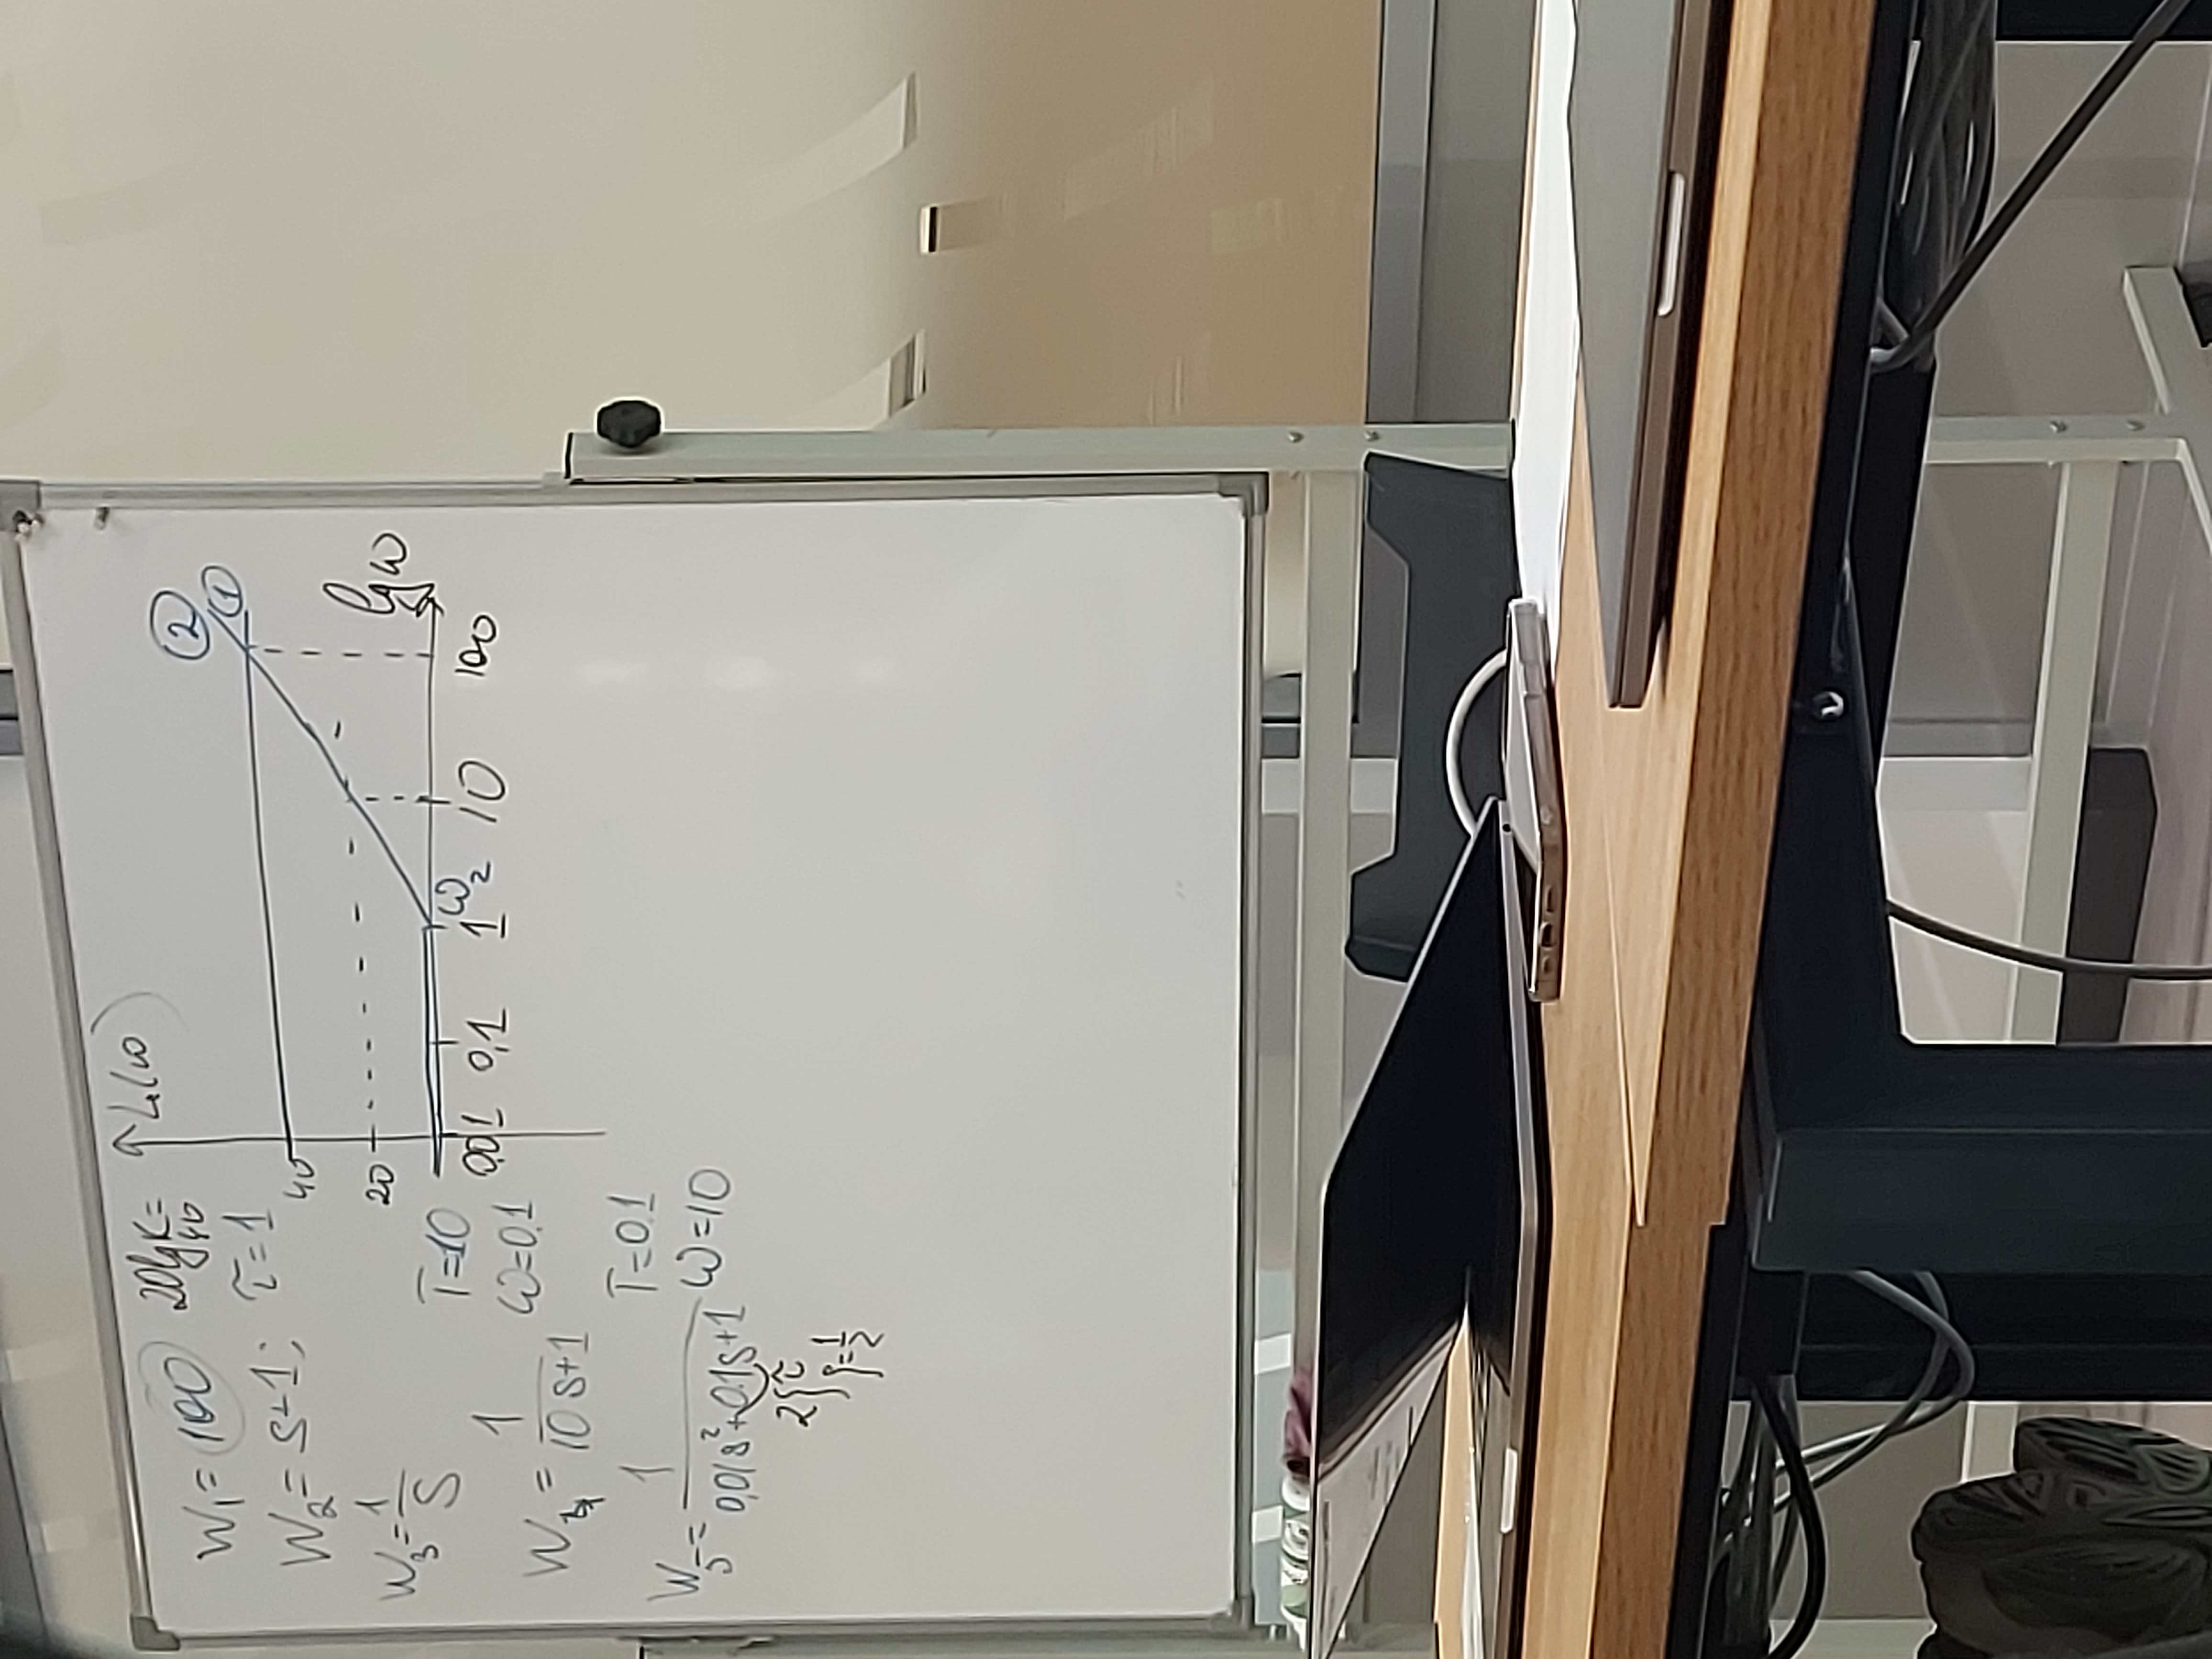 W₁ = 100
20lgK=
40
W₂ = S+1;
τ=1
W₃ = 1/S
W₄ = 1/(10S+1)
T=10
ω=0.1
W₅ = 1/(0,01s²+0.1s+1)
T=0.1
ω=10
2ξτ
ξ=1/2
L(ω)
②
①
40
20
lgω
0,01 0,1 1 ω₂ 10 100